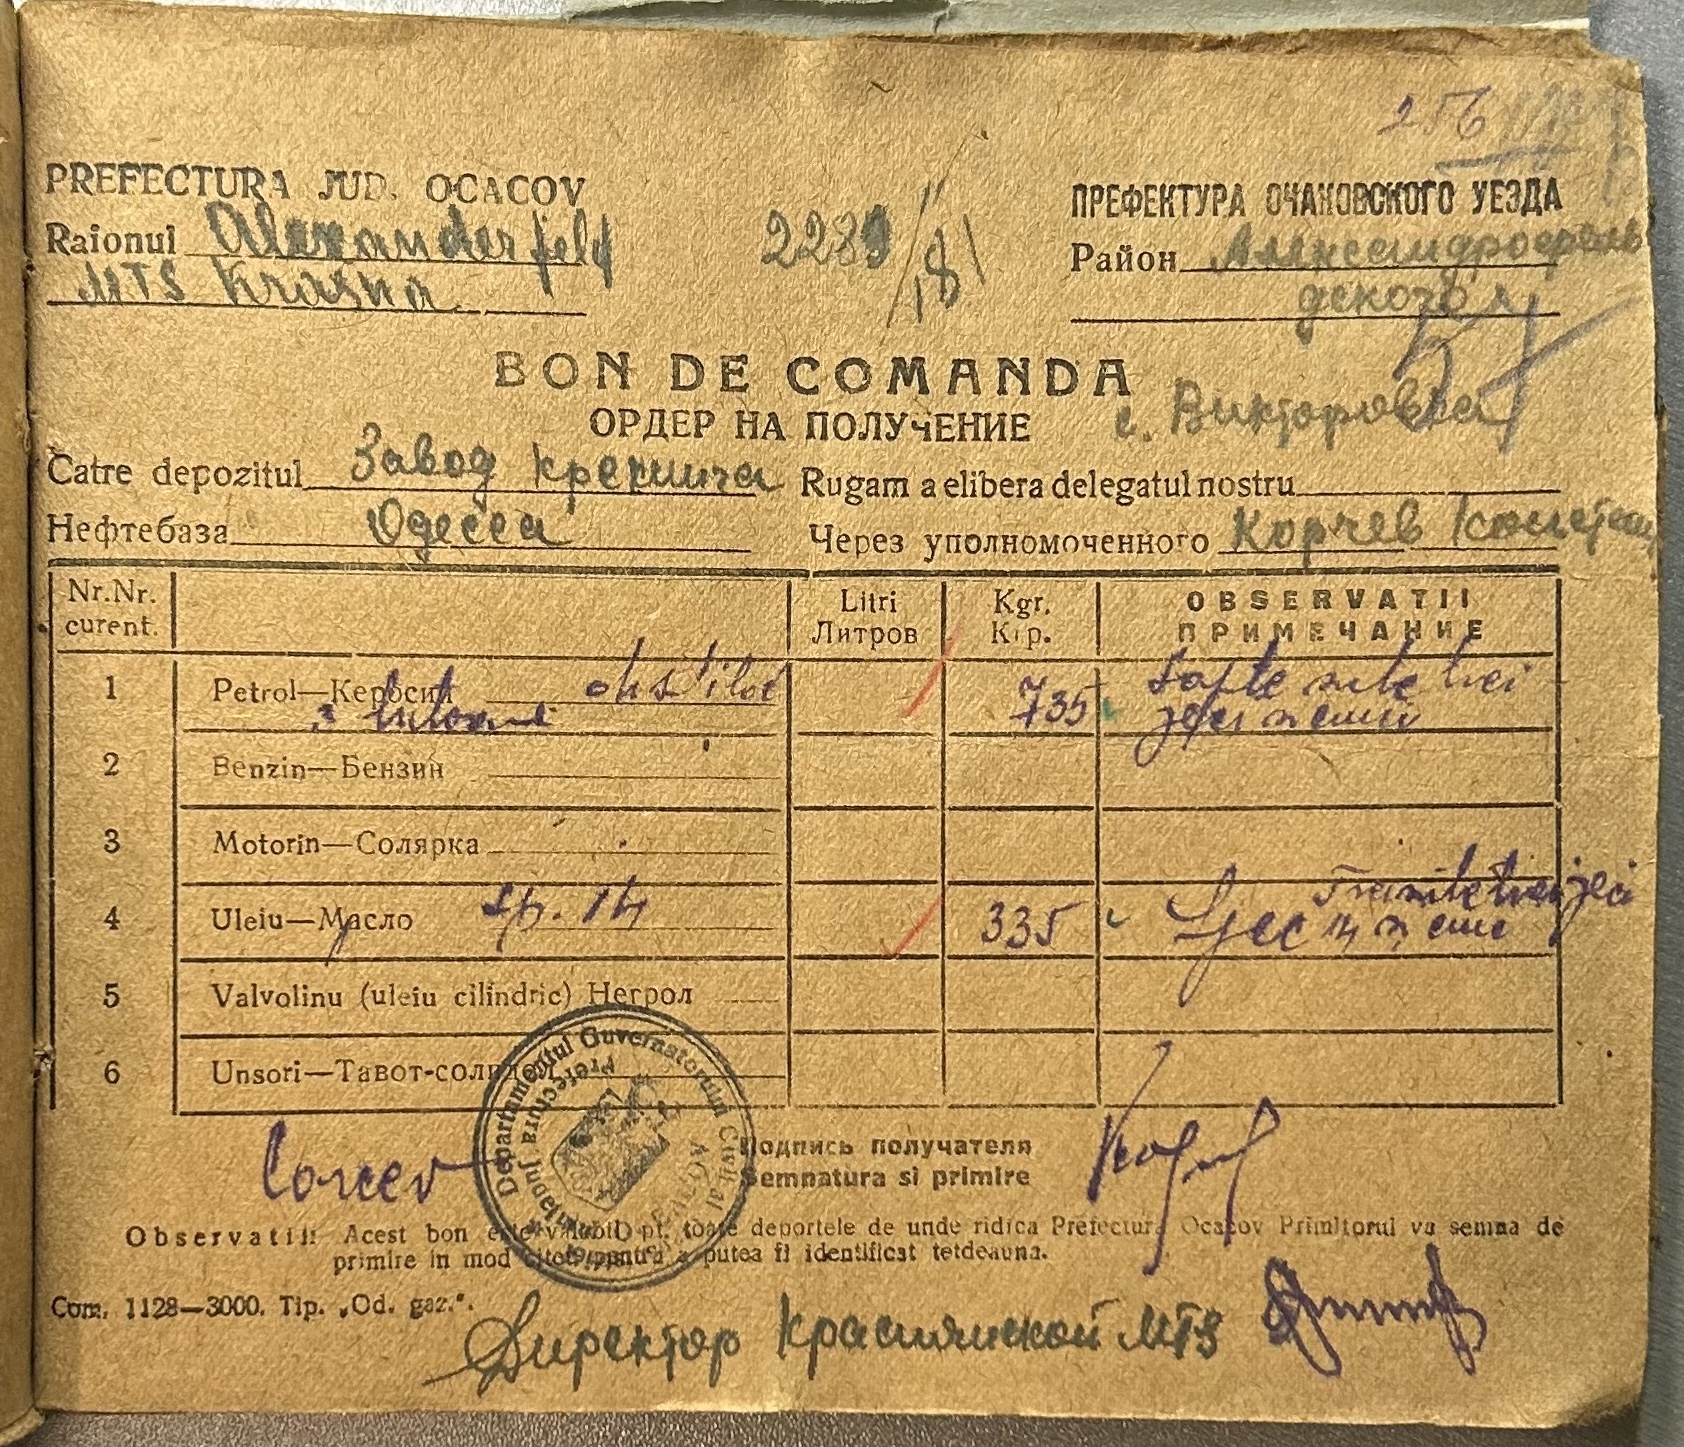 256
PREFECTURA JUD. OCACOV
ПРЕФЕКТУРА ОЧАКОВСКОГО УЕЗДА
Raionul Alexanderfeld
2289/181
Район Александрофель
дского
MTS Krasna
51
BON DE COMANDA
ОРДЕР НА ПОЛУЧЕНИЕ
с. Викторовка
Catre depozitul Завод Крекинга
Rugam a elibera delegatul nostru
Нефтебаза Одесса
Через уполномоченного Корчев
Nr.Nr. curent.
Litri Литров
Kgr. Кгр.
OBSERVATII ПРИМЕЧАНИЕ
1 Petrol—Керосин 735 Sapte sute trei
zeci si cinci
2 Benzin—Бензин
3 Motorin—Солярка
4 Uleiu—Масло 335 Trei sute trei zeci
si cinci
5 Valvolinu (uleiu cilindric) Негрол
6 Unsori—Тавот-солидол
Departamentul Guvernatorului Civil al
Prefectura Judeţului
Corcev
Подпись получателя
Semnatura si primire
Observatii: Acest bon este valabil pt. toate deportele de unde ridica Prefectura Ocacov Primitorul va semna de
primire in mod citet pentru a putea fi identificat tetdeauna.
Com. 1128—3000. Tip. „Od. gaz.".
Директор Краснянской MTS